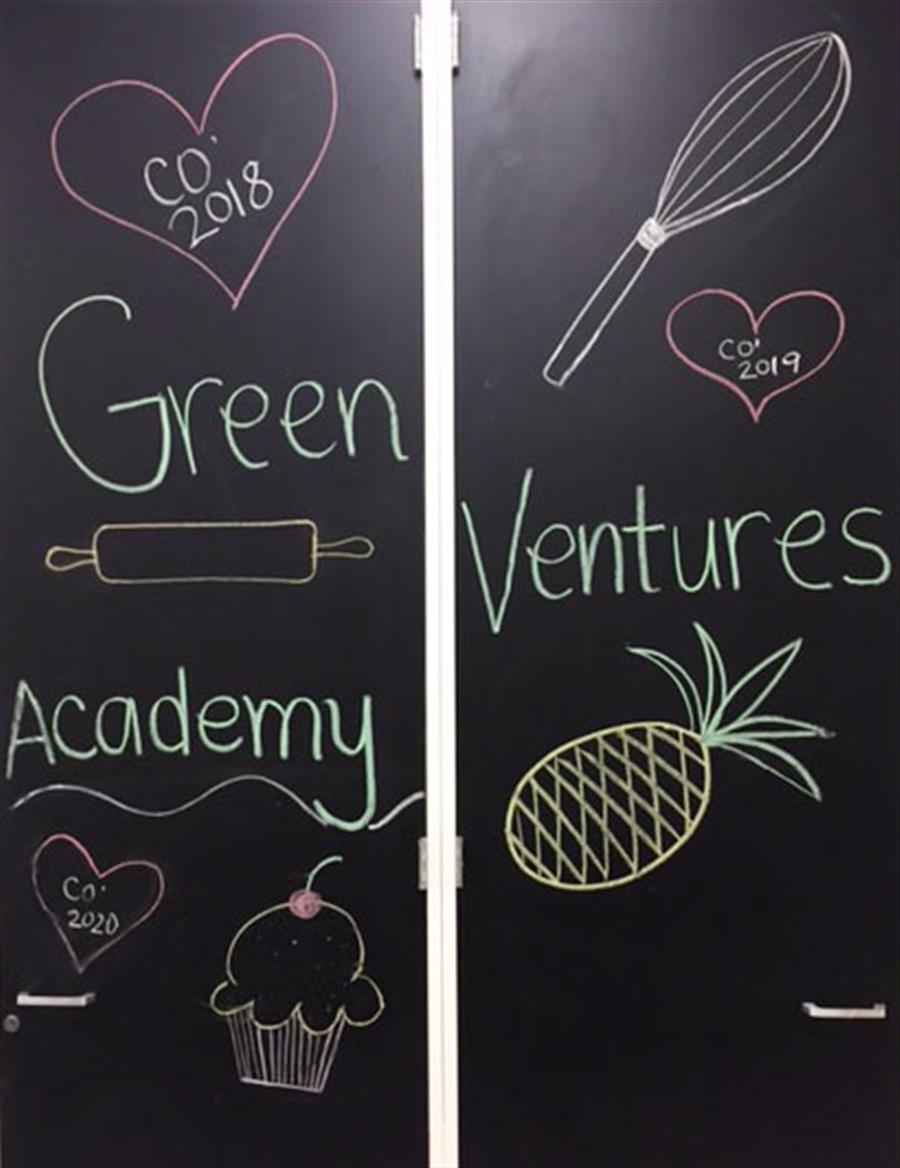 CO'
2018
Green
Academy
CO'
2020
CO'
2019
Ventures